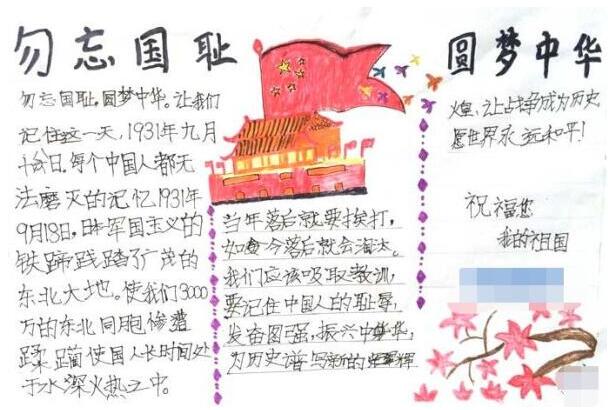 勿忘国耻
圆梦中华
勿忘国耻,圆梦中华。让我们
记住这一天,1931年九月
十八日。每个中国人都无
法磨灭的记忆1931年
9月18日,日本军国主义的
铁蹄践踏了广茂的
东北大地。使我们3000
万的东北同胞惨遭
蹂躏使国人长时间处
于水深火热之中。
当年落后就要挨打,
如今落后就会淘汰。
我们应该吸取教训,
要记住中国人的耻辱,
发奋图强,振兴中华,
为历史谱写新的辉
煌,让战争成为历史,
愿世界永远和平!
祝福您
我的祖国